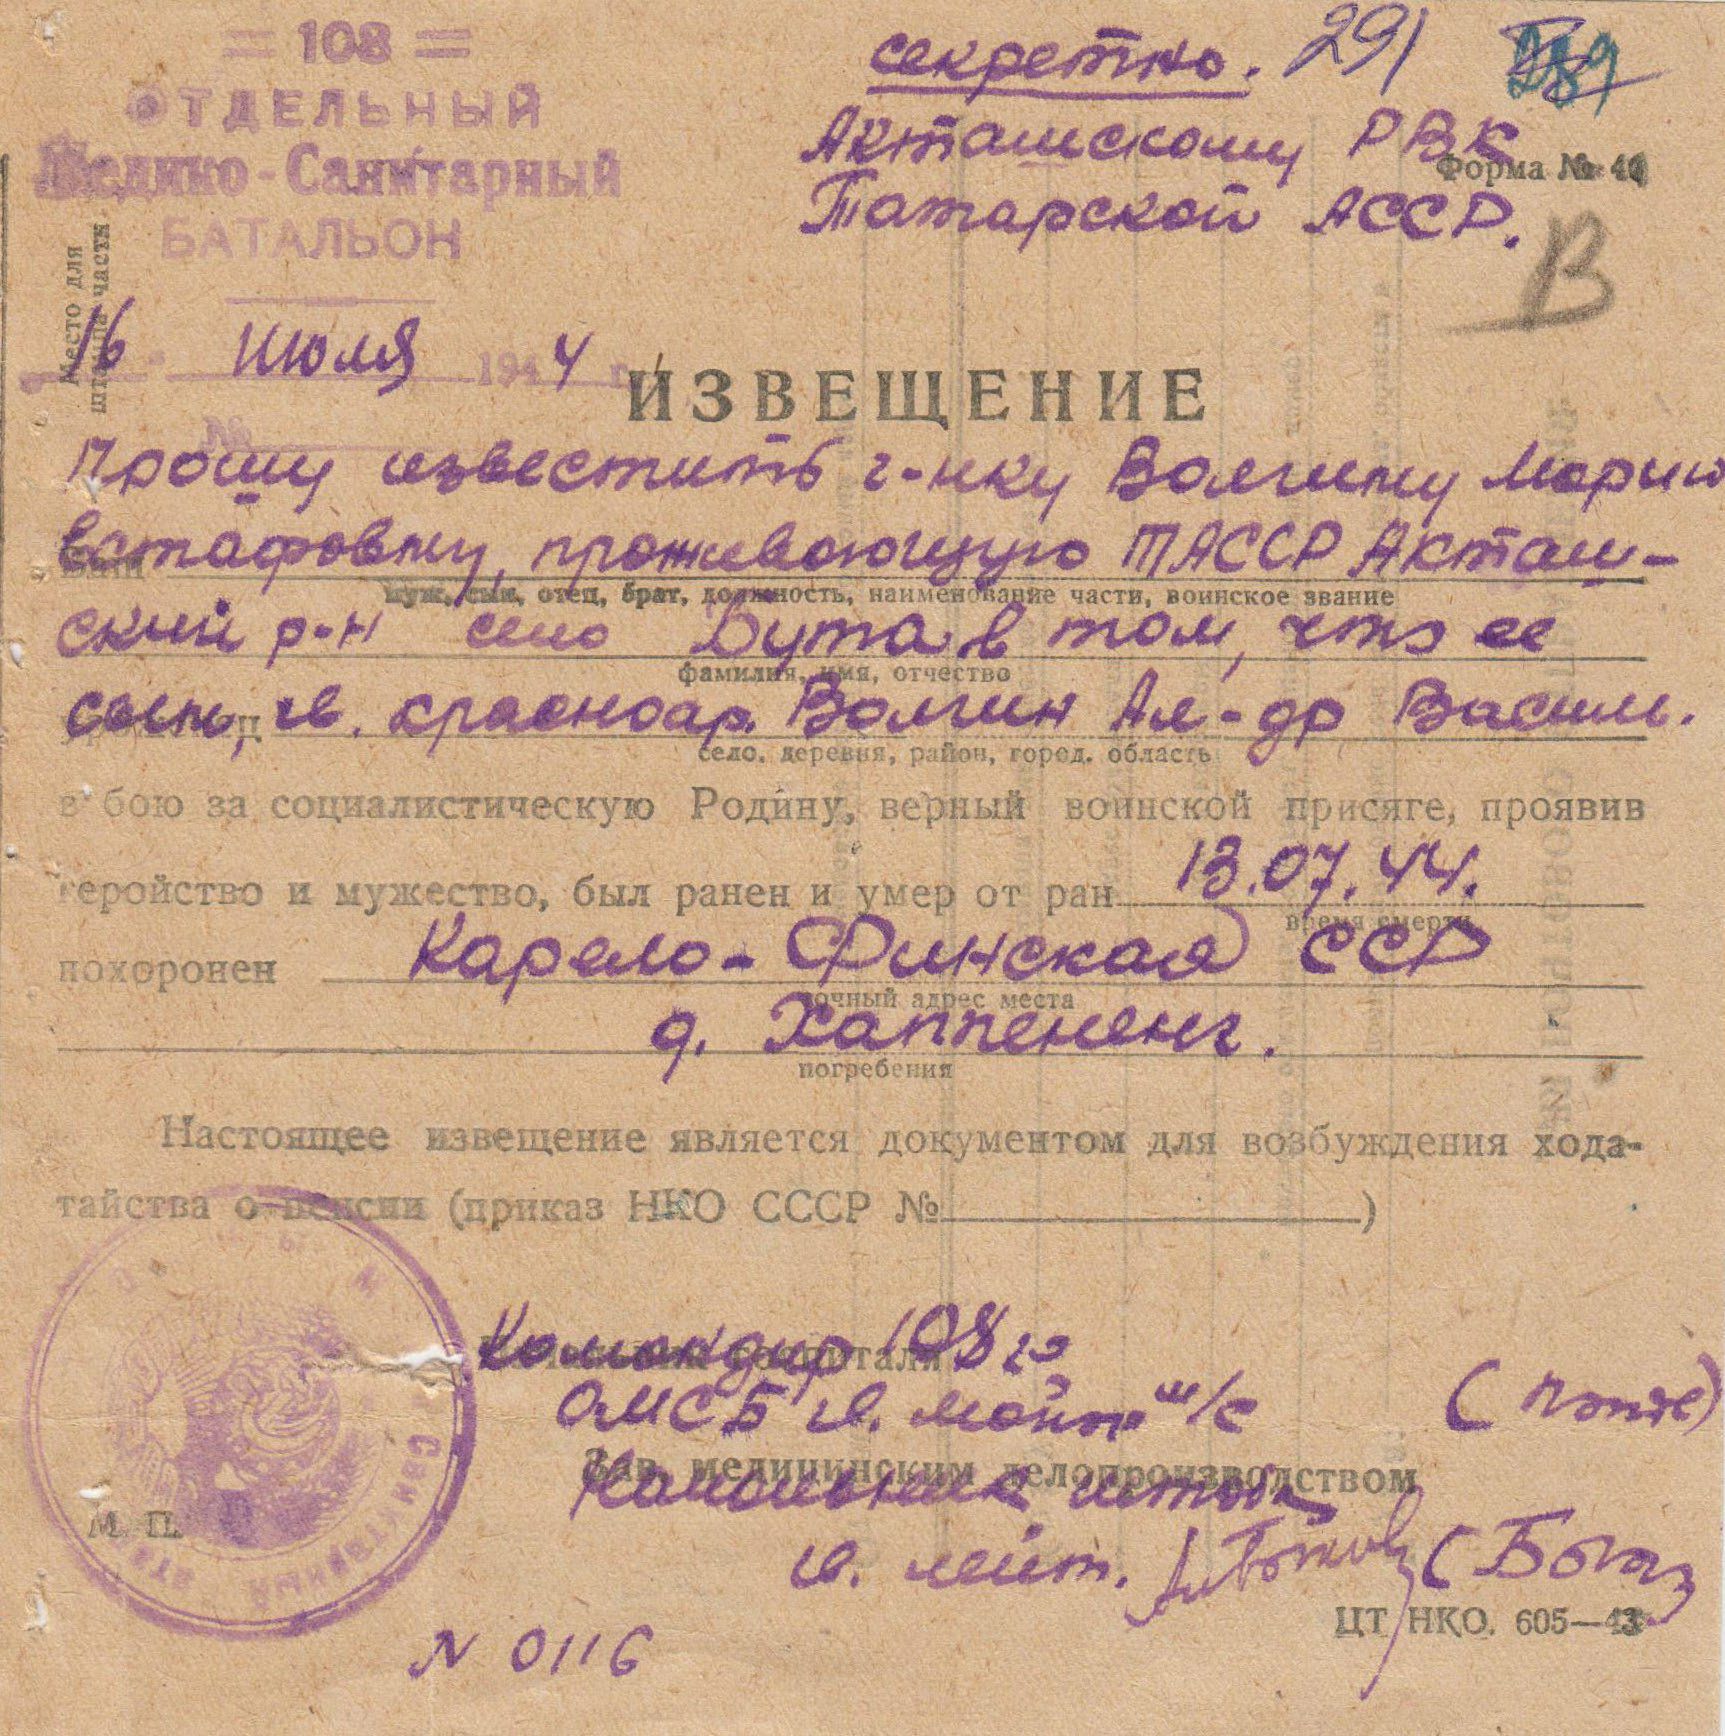 = 108 =
ОТДЕЛЬНЫЙ
Медико-Санитарный
БАТАЛЬОН
секретно. 291 289
Акташскому РВК
Форма № 4
Татарской АССР.
В
Место для
штампа части
16 июля 1944 г.
№
ИЗВЕЩЕНИЕ
Прошу известить г-нку Волгину Марию
Естафовну, проживающую ТАССР Акташ-
Ваш
муж, сын, отец, брат, должность, наименование части, воинское звание
ский р-н село Бута в том, что ее
фамилия, имя, отчество
сын, гв. красноар. Волгин Ал-др Васил.
село, деревня, район, город, область
в бою за социалистическую Родину, верный воинской присяге, проявив
геройство и мужество, был ранен и умер от ран 13.07.44.
время смерти
похоронен Карело-Финская ССР
точный адрес места
д. Хаппененг.
погребения
Настоящее извещение является документом для возбуждения хода-
тайства о пенсии (приказ НКО СССР № )
Командир 108 го
ОМСБ гв. майор м/с
Зав. медицинским делопроизводством
Начальник штаба
гв. лейт.
М. П.
ЦТ НКО. 605—43
N 0116